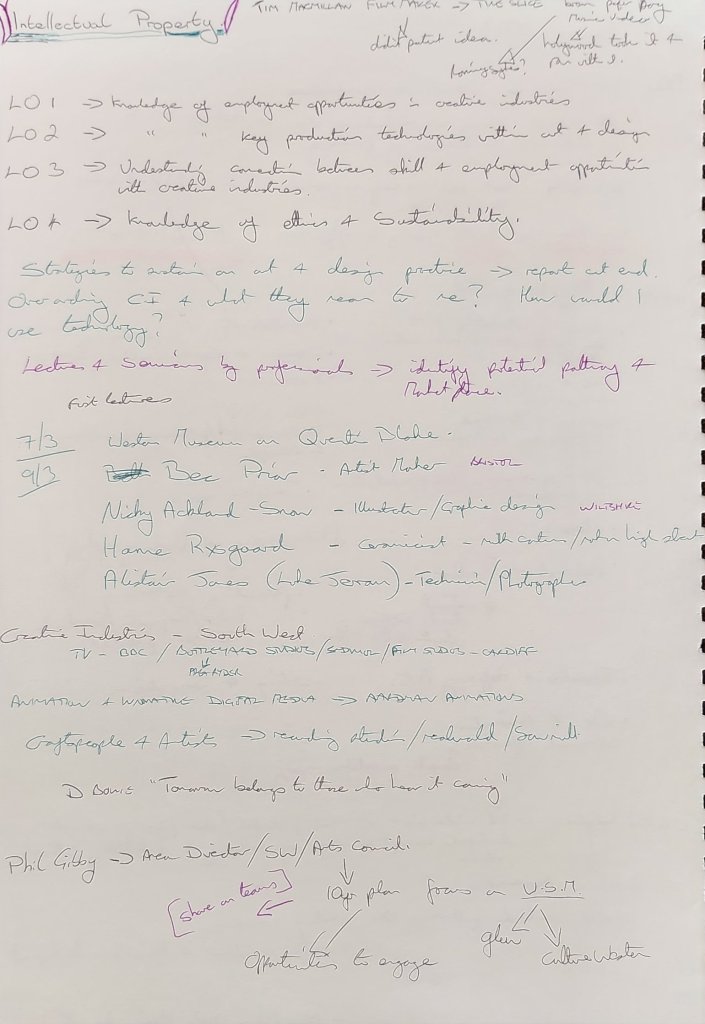 Intellectual Property.
TIM MACMILLAN FILM MAKER → THE SLICE
music videos
didn't patent idea.
hollywood took it &
ran with it.
LO 1 → Knowledge of employment opportunities in creative industries
LO 2 → " " key production technologies within art & design
LO 3 → Understanding connection between skill & employment opportunities
with creative industries.
LO 4 → Knowledge of ethics & Sustainability.
Strategies to sustain an art & design practice → report at end.
CI & what they mean to me? How could I
use technology?
Lectures & Seminars by professionals → identify potential pathway &
Market place.
First lectures
7/3 Weston Museum on Quentin Blake.
9/3 Bec Prior - Artist Maker BRISTOL
Nicky Ackland-Snow - Illustrator/Graphic design WILTSHIRE
Hanne Rysgaard - Ceramicist -
Alistair Jones (Luke Jerram) - Technician/Photographer
Creative Industries - South West.
TV - BBC / BOTTLEYARD STUDIOS / / FILM STUDIOS - CARDIFF
ANIMATION & DIGITAL MEDIA → AARDMAN ANIMATIONS
Craftspeople & Artists → / /
D BOWIE "Tomorrow belongs to those who hear it coming"
Phil Gibby → Area Director/SW/Arts Council.
[share on teams] 10yr plan focus on W.S.M.
Opportunities to engage Culture Weston